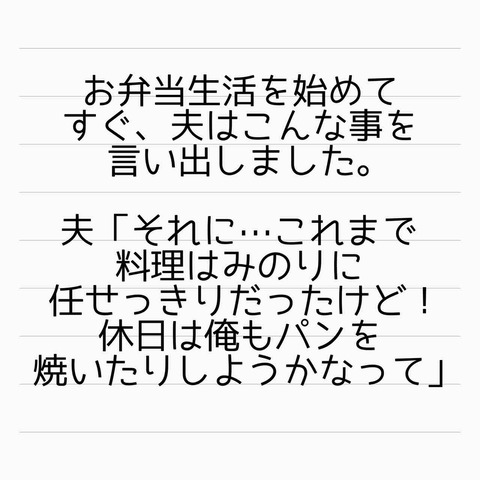 お弁当生活を始めて
すぐ、夫はこんな事を
言い出しました。
夫「それに…これまで
料理はみのりに
任せっきりだったけど！
休日は俺もパンを
焼いたりしようかなって」